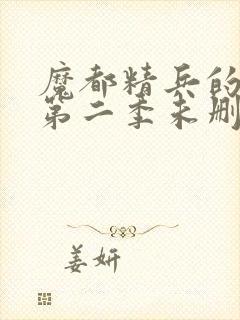 魔都精兵的
第二季未删
姜妍